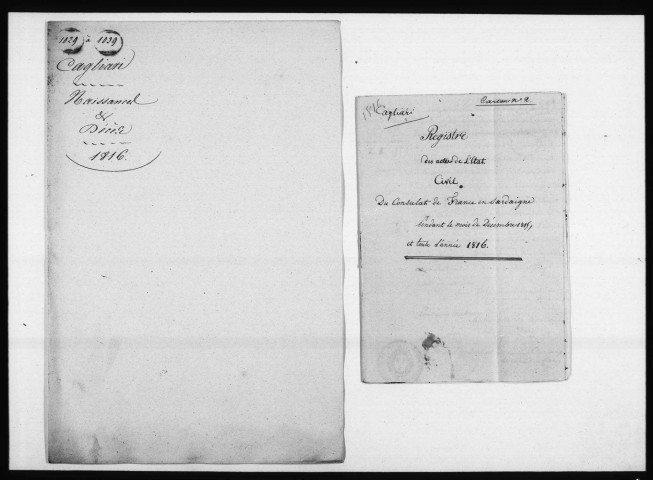 1029 à 1039
Cagliari
Naissances
&
Décès
1816
Carton n.º 2
1816
Cagliari
Registre
des actes de l'Etat
Civil
Du Consulat de France en Sardaigne
Pendant le mois de Décembre 1815,
et toute l'année 1816.